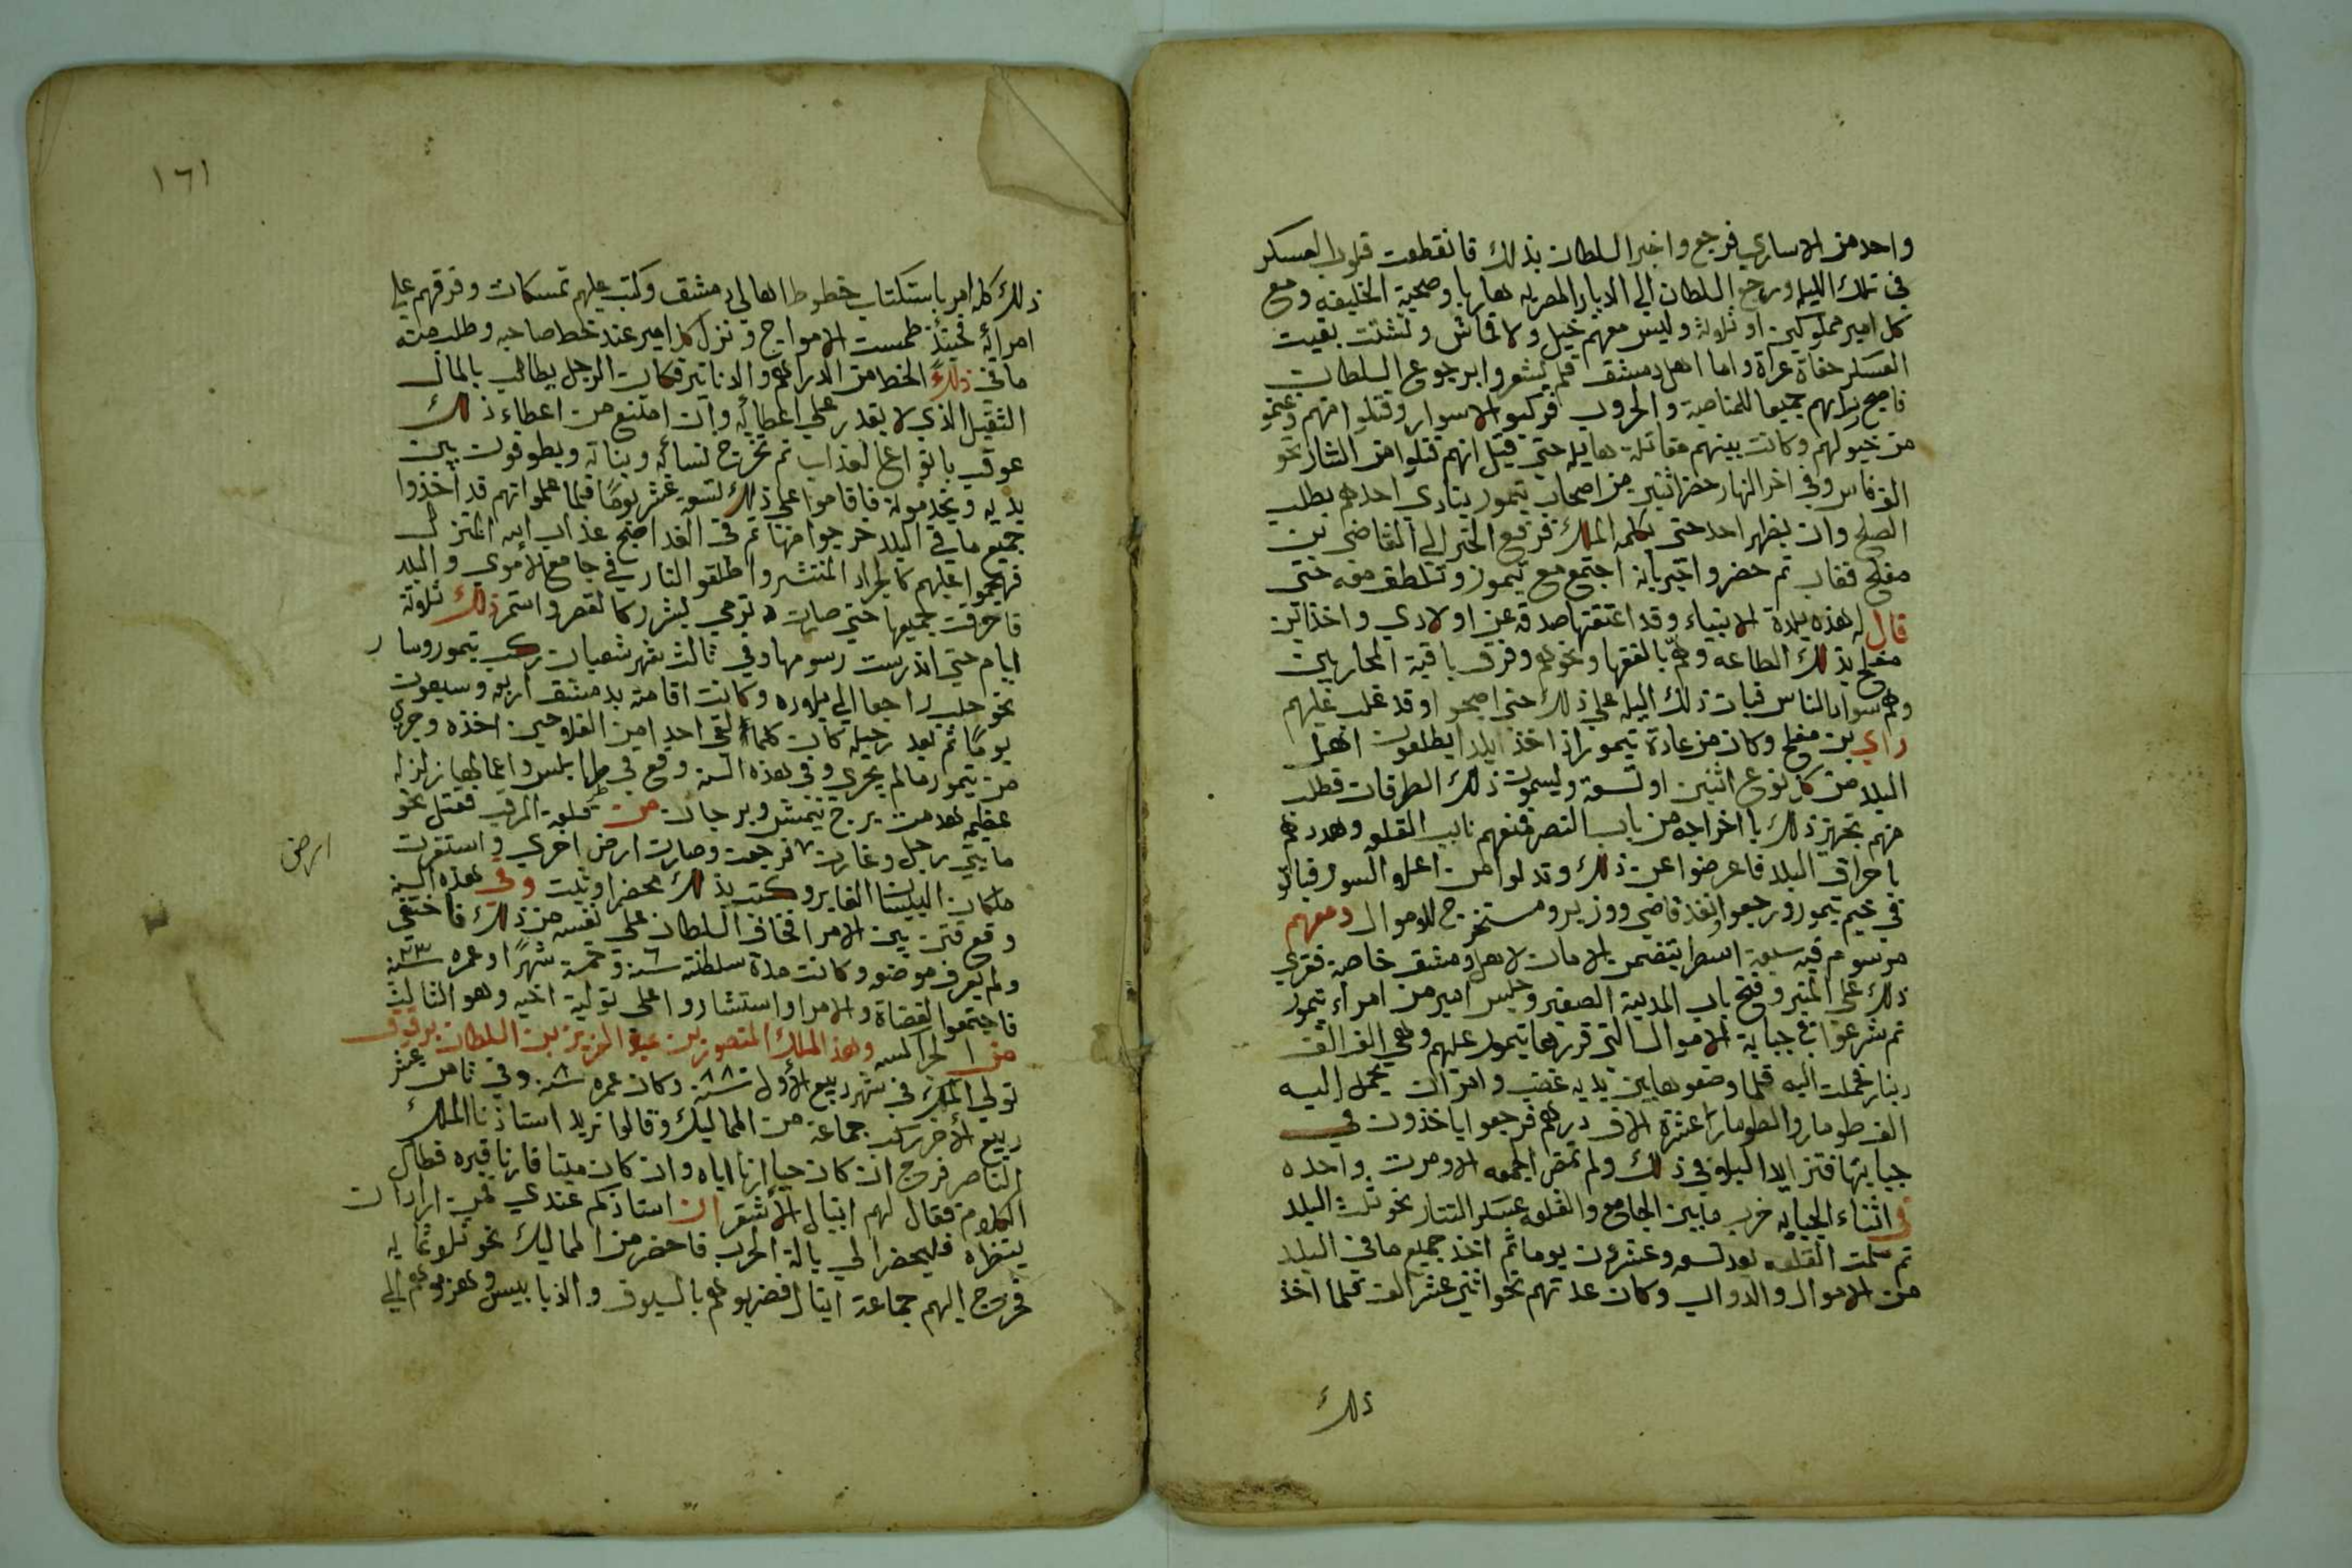 واحد من الاساري فرجع واخبر السلطان بذلك فانقطعت قلوب العسكر
في تلك الليله ورجع السلطان الي الديار المصريه هاربا وصحبة الخليفه ومع
كل امير مملوكين او ثلاثة وليس معهم خيل ولا قماش وتشتت بقيت
العسكر حفاة عراة واما اهل دمشق فلم يشعروا برجوع السلطان
فاصبح جميعا للمناصبة والحروب فركبو الاسوار وقتلوا منهم وغنمو
من خيولهم وكانت بينهم مقاتلة هايله حتى قيل انهم قتلوا من التتار نحو
الف فارس وفي اخر النهار حضر اثنين من اصحاب تيمور ينادي احدهم بطلب
الصلح وان يظهر احد حتى يكلمه الملك فرفع الخبر الي القاضي بن
مفلح فقال ثم حضر واخبر بانه اجتمع مع تيمور وتلطف معه حتى
قال له هذه بلدة الانبياء وقد اعتقتها صدقة عن اولادي واخذ ابن
مفلح بذلك الطاعه وهم بالفقها ونحوهم وفرق باقية المحاربين
وهم سواد الناس فبات ذلك اليله على ذلك حتى اصبحوا وقد غلب عليهم
راي بن مفلح وكان من عادة تيمور اذا اخذ بلدا يطلعون اهل
البلد من كل نوع اثنين او تسعة ويسموت ذلك الطرقات فطلب
منهم تجهز ذلك باخراجه من باب النصر فمنعهم نايب القلعه وهددهم
باحراق البلد فاعرضوا عن ذلك وتدلوا من اعلا السور فباتو
في خيم تيمور ورجعوا وانفذ قاضي ووزير ومستخرج للاموال ومعهم
مرسوم فيه سبعة اسطر يتضمن الامان لاهل دمشق خاصة فقري
ذلك على المنبر وفتح باب المدينة الصغير وجلس امير من امراء تيمور
ثم شرعوا في جباية الاموال التى قررها تيمور عليهم وهي الف الف
دينار فحملت اليه فلما وضعوها بين يديه غضب وامر ان يحمل اليه
الف طومار والطومار عشرة الاف درهم فرجعوا ياخذون في
جبايتها فتزايد البلاء في ذلك ولم تقم الجمعه الا ومرت واحده
في اثناء الجبايه خرب ما بين الجامع والقلعه عسكر التتار نحو ثلث البلد
ثم سلمت القلعه بعد تسعه وعشرون يوما ثم اخذ جميع ما في البلد
من الاموال والدواب وكان عدتهم نحو اثني عشر الف فلما اخذ
ذلك
١٦١
ذلك كله امر باستكتاب خطوط اهالي دمشق وكتب عليهم تمسكات وفرقهم علي
امرائه فحينئذ طمست الامواج ونزل كل امير عند خط صاحبه وطلب منه
ما في ذلك الخط من الدراهم والدنانير فكان الرجل يطالب بالمال
الثقيل الذي لا يقدر على اعطائه وان امتنع من اعطاء ذلك
عوقب بانواع العذاب ثم تخرج نسائه وبناته ويطوفون بين
يديه ويخدمونه فاقاموا على ذلك تسعه عشر يوما فلما علموا انهم قد اخذوا
جميع ما في البلد خرجوا منها ثم في الغد اصبح عذاب الله المنزل
فهجموا عليهم كالجراد المنتشر واطلقوا النار في جامع الاموي والبلد
فاحرقت جميعها حتى صارت ترمي بشرر كالقصر واستمر ذلك ثلاثة
ايام حتى اندرست رسومها وفي ثالث شهر شعبان ركب تيمور وسار
نحو حلب راجعا الي بلاده وكانت اقامته بدمشق اربعه وسبعون
يوما ثم بعد رحيله كان كلما لقي احدا من الفلاحين اخذه وجرى
من تيمور مالم يجري وفي هذه السنه وقع في طرابلس واعمالها زلزله
عظيمه هدمت برج وبرجان من قلعة المرقب فقتل نحو
مايتي رجل وغارت فرجعت وصارت ارض اخري واستقرت
ارض
مكان البلستا الغاير وكتب بذلك محضر اوثبت وفي هذه السنه
وقع فتن بين الامرا فخاف السلطان على نفسه من ذلك فاختفي
ولم يعرف موضعه وكانت مدة سلطنته ٦ سنه وخمسة شهرا وعمره ٢٣ سنه
فاجتمعوا القضاة والامرا واستشاروا على تولية اخيه وهو الثالث
من الجراكسه وهذا الملك المنصور بن عبد العزيز بن السلطان برقوق
تولي الملك في شهر ربيع الاول سنه ٨٨ وكان عمره ٨ سنه وفي ثامن عشر
ربيع الاخر ركب جماعة من المماليك وقالوا نريد استاذنا الملك
الناصر فرج ان كان حيا ارنا اياه وان كان ميتا فارنا قبره فطال
الكلام فقال لهم اينال الاشقر ان استاذكم عندي فمن اراد ان
ينظره فليحضر الي بالة الحرب فاحضر من المماليك نحو ثلاثمايه
فخرج اليهم جماعة اينال فضربوهم بالسيوف والدبابيس وهزموهم الي